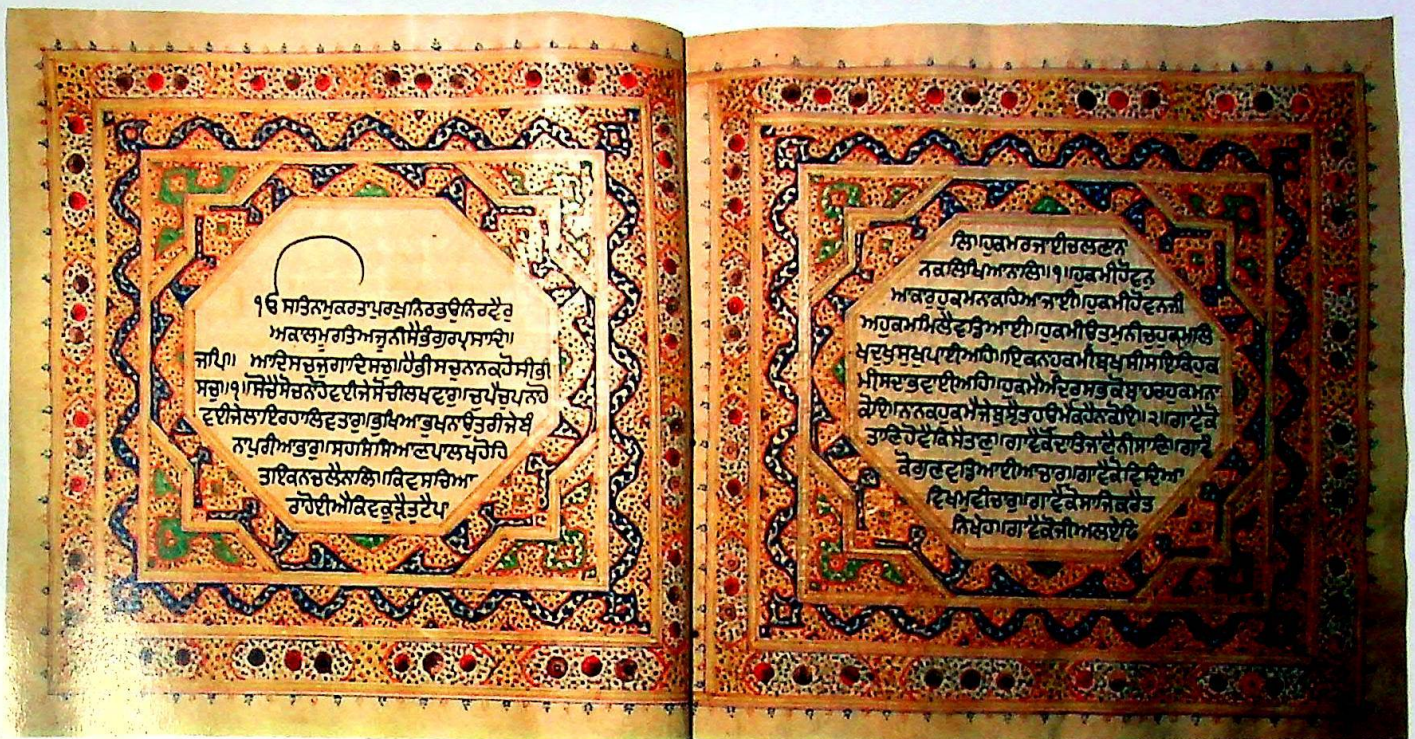 ੴ ਸਤਿਨਾਮੁਕਰਤਾਪੁਰਖੁਨਿਰਭਉਨਿਰਵੈਰੁ
ਅਕਾਲਮੂਰਤਿਅਜੂਨੀਸੈਭੰਗੁਰਪ੍ਰਸਾਦਿ॥
ਜਪਿ॥ ਆਦਿਸਚੁਜੁਗਾਦਿਸਚੁ॥ਹੈਭੀਸਚੁਨਾਨਕਹੋਸੀਭੀ
ਸਚੁ॥੧॥ਸੋਚੈਸੋਚਨਹੋਵਈਜੇਸੋਚੀਲਖਵਾਰੁ॥ਚੁਪੈਚੁਪਨਹੋ
ਵਈਜੇਲਾਇਰਹਾਲਿਵਤਾਰੁ॥ਭੁਖਿਆਭੁਖਨਉਤਰੀਜੇਬੰ
ਨਾਪੁਰੀਆਭਾਰੁ॥ਸਹਸਸਿਆਣਪਾਲਖਹੋਹਿ
ਤਾਇਕਨਚਲੈਨਾਲਿ॥ਕਿਵਸਚਿਆ
ਰਾਹੋਈਐਕਿਵਕੂੜੈਤੁਟੈਪਾ
ਲਿ॥ਹੁਕਮਰਜਾਈਚਲਣਾਨਾ
ਨਕਲਿਖਿਆਨਾਲਿ॥੧॥ਹੁਕਮੀਹੋਵਨ
ਆਕਾਰਹੁਕਮਨਕਹਿਆਜਾਈ॥ਹੁਕਮੀਹੋਵਨਜੀ
ਅਹੁਕਮਮਿਲੈਵਡਿਆਈ॥ਹੁਕਮੀਉਤਮੁਨੀਚੁਹੁਕਮਿਲਿ
ਖਿਦੁਖਸੁਖਪਾਈਅਹਿ॥ਇਕਨਾਹੁਕਮੀਬਖਸੀਸਇਕਿਹੁਕ
ਮੀਸਦਾਭਵਾਈਅਹਿ॥ਹੁਕਮੈਅੰਦਰਿਸਭਕੋਬਾਹਰਹੁਕਮਨ
ਕੋਇ॥ਨਾਨਕਹੁਕਮੈਜੇਬੁਝੈਤਹਉਮੈਕਹੈਨਕੋਇ॥੨॥ਗਾਵੈਕੋ
ਤਾਣੁਹੋਵੈਕਿਸੈਤਾਣੁ॥ਗਾਵੈਕੋਦਾਤਿਜਾਣੈਨੀਸਾਣੁ॥ਗਾਵੈ
ਕੋਗੁਣਵਡਿਆਈਆਚਾਰ॥ਗਾਵੈਕੋਵਿਦਿਆ
ਵਿਖਮੁਵੀਚਾਰੁ॥ਗਾਵੈਕੋਸਾਜਿਕਰੇਤ
ਨੁਖੇਹ॥ਗਾਵੈਕੋਜੀਅਲਏਫਿ